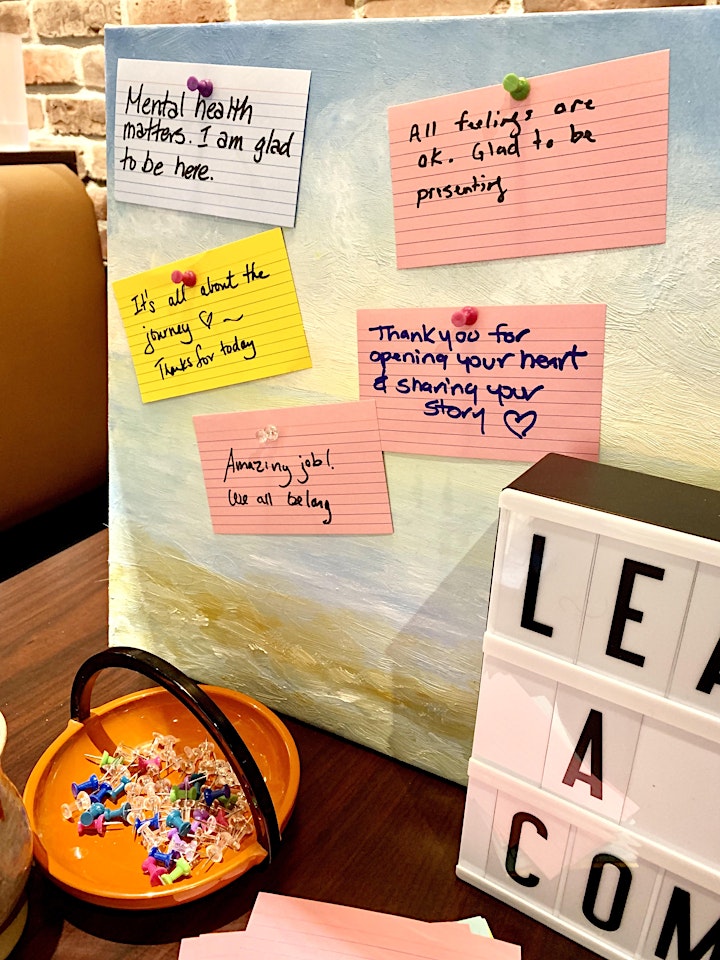 Mental health
matters. I am glad
to be here.
All feelings are
ok. Glad to be
presenting
It's all about the
journey ♡ ~
Thanks for today
Thank you for
opening your heart
& sharing your
story ♡
Amazing job!
We all belong
LEA
A
COM